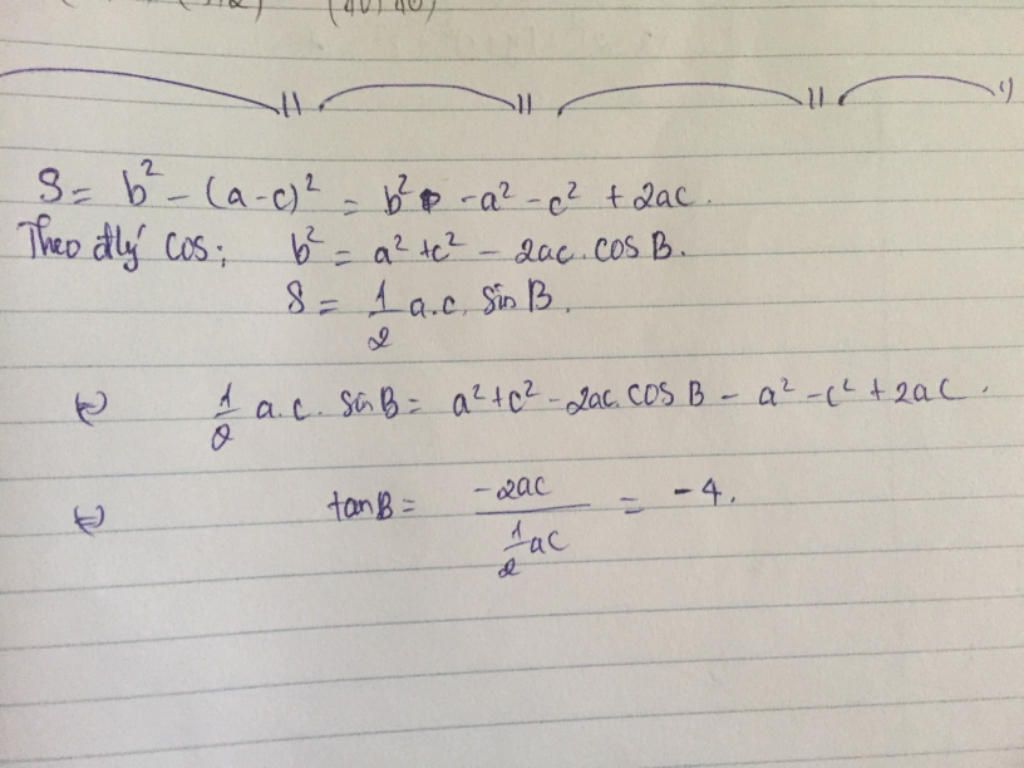 S = b² - (a-c)² = b² - a² - c² + 2ac.
Theo đlý cos: b² = a² + c² - 2ac.cos B.
S = 1/2 a.c. sin B.
⇔ 1/2 a.c. sin B = a² + c² - 2ac.cos B - a² - c² + 2ac.
⇔ tan B = -2ac / 1/2 ac = -4.